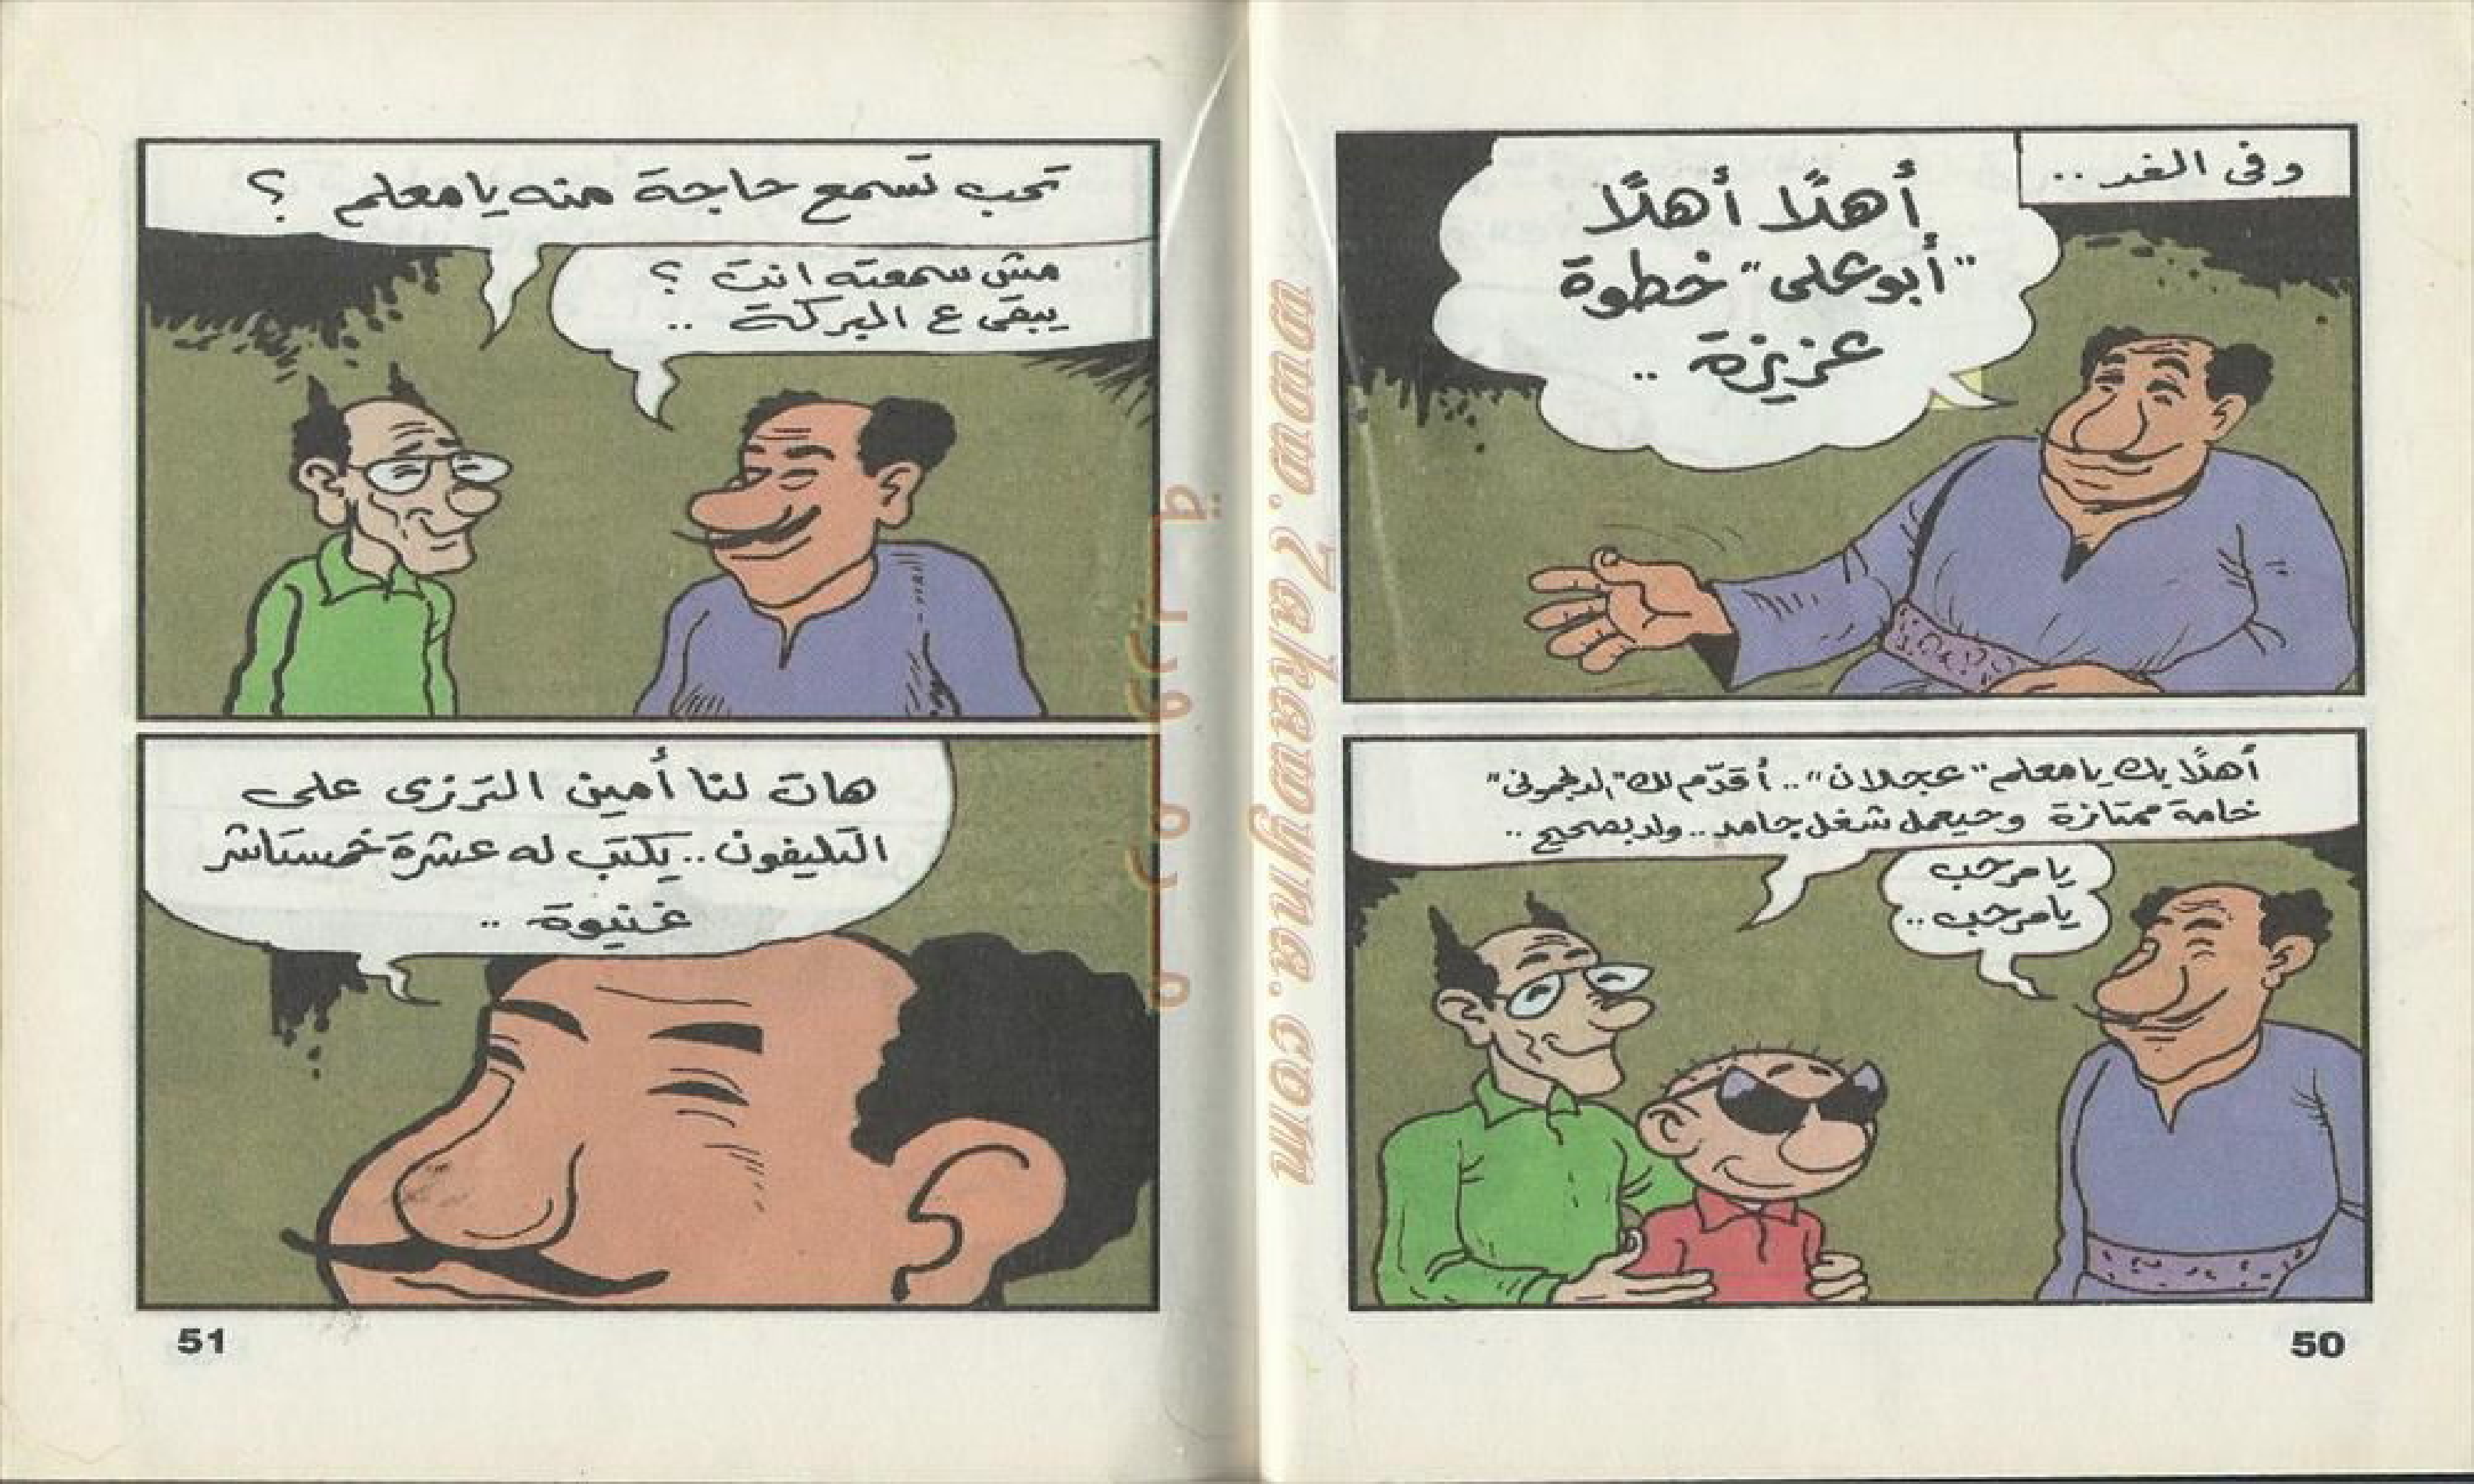 وفى الغد ..
أهلًا أهلًا
"أبو على" خطوة
عزيزة ..
أهلًا بك يا معلم "عجلان" .. أقدّم لك
خامة ممتازة وحيعمل شغل جامد .. ولد بصحيح ..
يا مرحب
يا مرحب ..
50
تحب تسمع حاجة منه يا معلم ؟
مش سمعته انت ؟
يبقى ع البركة ..
هات لنا أمين الترزى على
التليفون .. يكتب له عشرة خمستاشر
غنيوة ..
51
www.Zakawyna.com